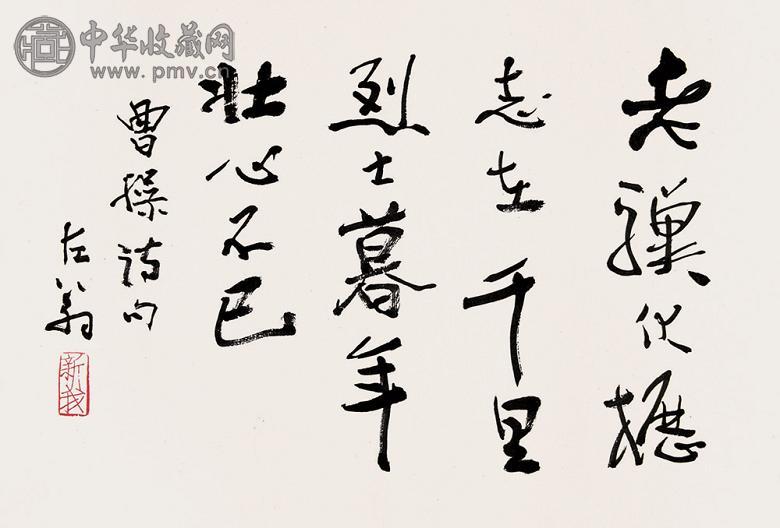 中华收藏网
www.pmv.cn
老驥伏櫪
志在千里
烈士暮年
壯心不已
曹操詩句
左翁
新我